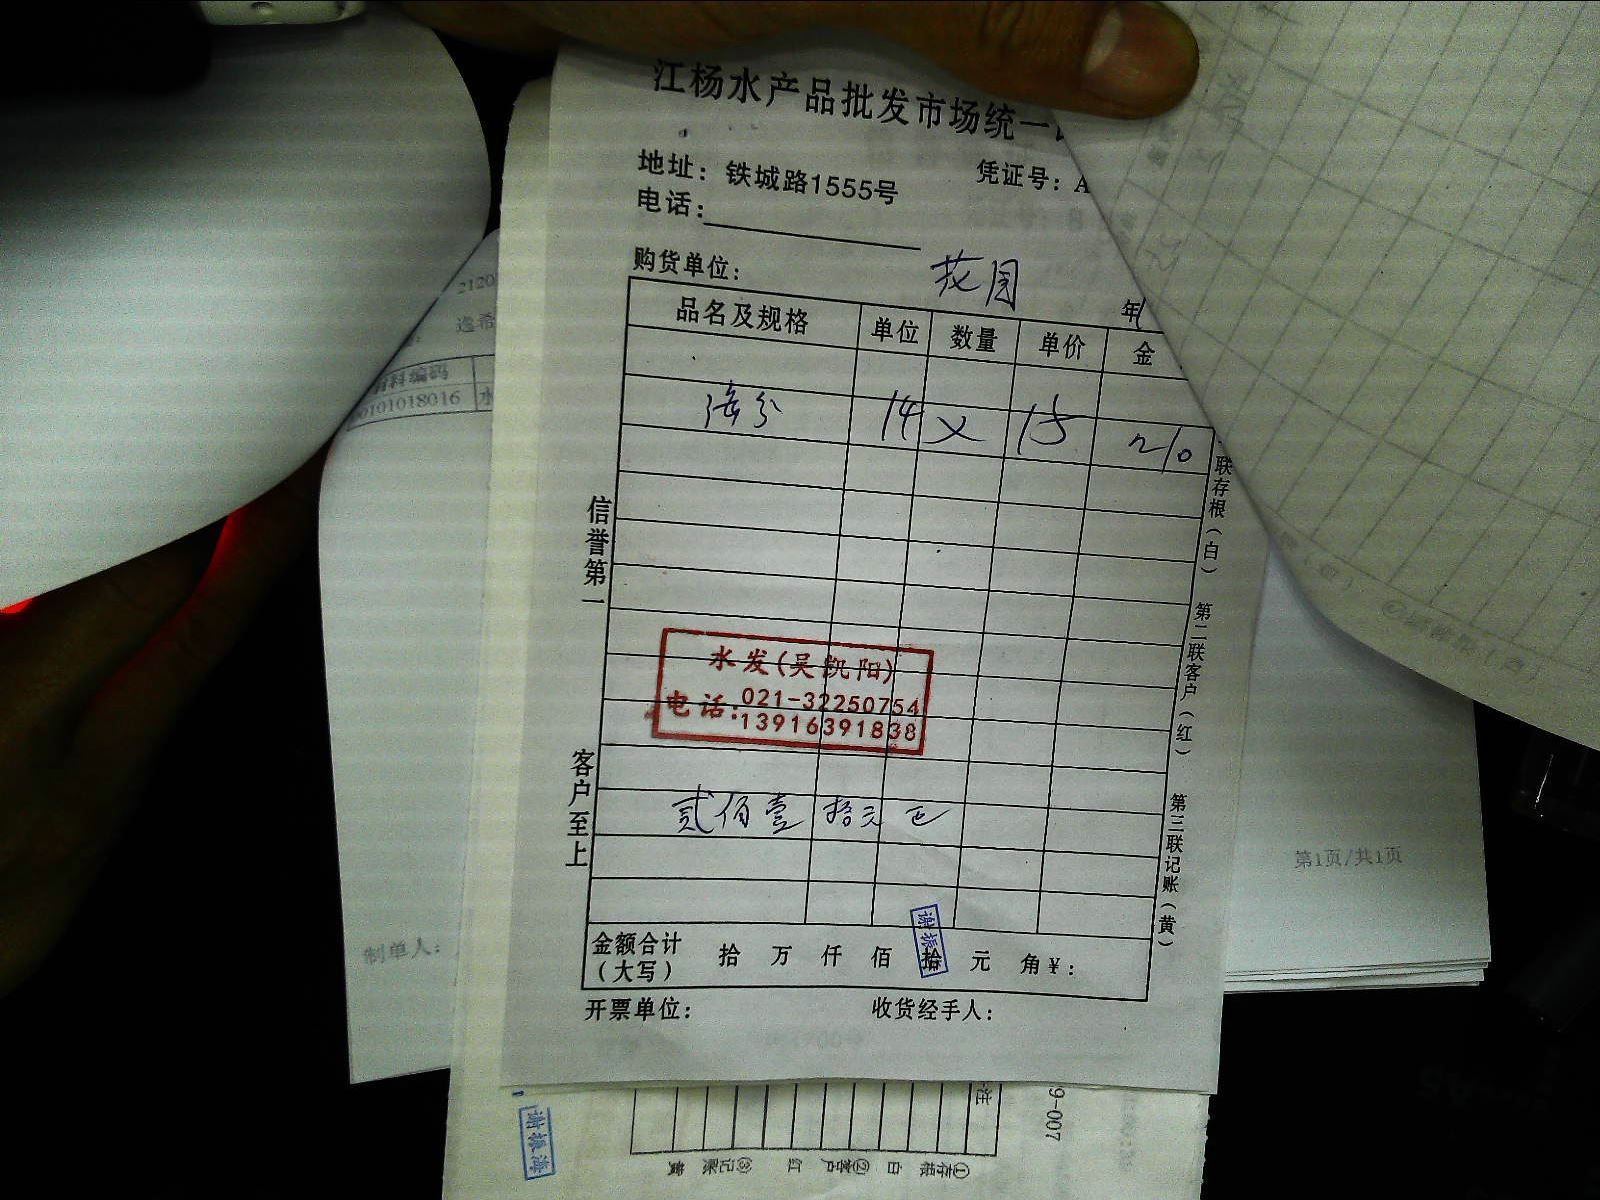 江杨水产品批发市场统一
地址：铁城路1555号
凭证号：A
电话：
购货单位：
花园
年
品名及规格 单位 数量 单价 金
14 × 15 210
信誉第一
客户至上
水发(吴凯阳)
电话：021-32250754
13916391838
贰佰壹拾元正
金额合计（大写） 拾 万 仟 佰 拾 元 角￥：
开票单位： 收货经手人：
联存根（白） 第二联客户（红） 第三联记账（黄）
谢振
2120
料编码
0101018016 水
制单人：
第1页/共1页
谢振海
9-007
注
①存根 白 ②客户 红 ③记账 黄